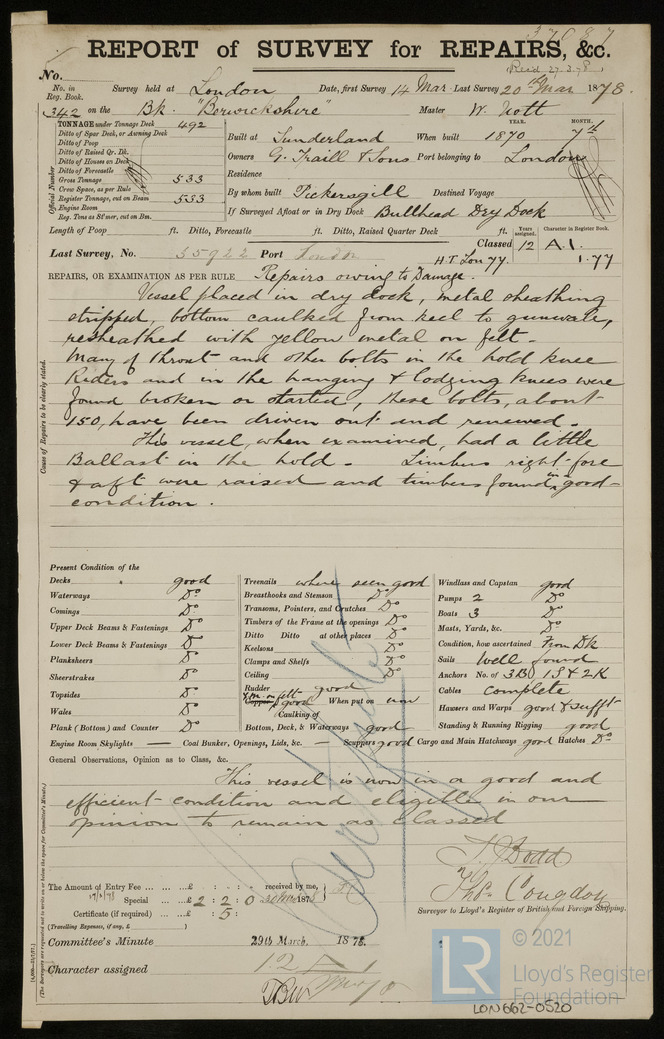 37087
REPORT of SURVEY for REPAIRS, &c.
Recd 27.3.78
No.
No. in Reg. Book. Survey held at London Date, first Survey 14 Mar Last Survey 20th Mar 1878.
342 on the Bk. "Berwickshire" Master W. Nott
TONNAGE under Tonnage Deck 492
Ditto of Spar Deck, or Awning Deck
Ditto of Poop
Ditto of Raised Qr. Dk.
Ditto of Houses on Deck
Ditto of Forecastle
Gross Tonnage 533
Crew Space, as per Rule
Register Tonnage, cut on Beam 533
Engine Room
Reg. Tons as Stmer, cut on Bm.
Official Number
YEAR. MONTH.
Built at Sunderland When built 1870 7
Owners G. Traill & Sons Port belonging to London
Residence
By whom built Pickersgill Destined Voyage
If Surveyed Afloat or in Dry Dock Bullhead Dry Dock
Length of Poop ft. Ditto, Forecastle ft. Ditto, Raised Quarter Deck ft.
Years assigned. Character in Register Book.
Classed 12 A.1.
Last Survey, No. 35922 Port London H.T. Lon 77. 1.77
REPAIRS, OR EXAMINATION AS PER RULE Repairs owing to Damage.
Vessel placed in dry dock, metal sheathing
stripped, bottom caulked from keel to gunwale,
resheathed with yellow metal on felt.
Many of throat and other bolts in the hold knee
Riders and in the hanging & lodging knees were
found broken or started, these bolts, about
150, have been driven out and renewed.
This vessel, when examined, had a little
Ballast in the hold. Limbers right fore
& aft were raised and timbers found in good
condition.
Cause of Repairs to be clearly stated.
Present Condition of the
Decks good
Waterways Do
Comings Do
Upper Deck Beams & Fastenings Do
Lower Deck Beams & Fastenings Do
Planksheers Do
Sheerstrakes Do
Topsides Do
Wales Do
Plank (Bottom) and Counter Do
Treenails where seen good
Breasthooks and Stemson Do
Transoms, Pointers, and Crutches Do
Timbers of the Frame at the openings Do
Ditto Ditto at other places Do
Keelsons Do
Clamps and Shelfs Do
Ceiling Do
Rudder good
Y.M. on felt
Copper good When put on now
Caulking of
Bottom, Deck, & Waterways good
Windlass and Capstan good
Pumps 2 Do
Boats 3 Do
Masts, Yards, &c. Do
Condition, how ascertained From Dk
Sails Well found
Anchors No. of 3B 1S & 2K
Cables complete
Hawsers and Warps good & sufft
Standing & Running Rigging good
Engine Room Skylights — Coal Bunker, Openings, Lids, &c. — Scuppers good Cargo and Main Hatchways good Hatches Do
General Observations, Opinion as to Class, &c.
This vessel is now in a good and
efficient condition and eligible in our
opinion to remain as classed
T. J. Dodd
Thos. Congdon
Surveyor to Lloyd's Register of British and Foreign Shipping.
The Amount of Entry Fee ... ... ...£ : : received by me,
Special ... ...£ 2 : 2 : 0 1878
Certificate (if required) ...£ : 5 :
(Travelling Expenses, if any, £ )
Committee's Minute 29th March, 1878.
Character assigned 12 A 1
(The Surveyors are requested not to write on or below the space for Committee's Minute.)
LR
© 2021
Lloyd's Register
Foundation
LON662-0520